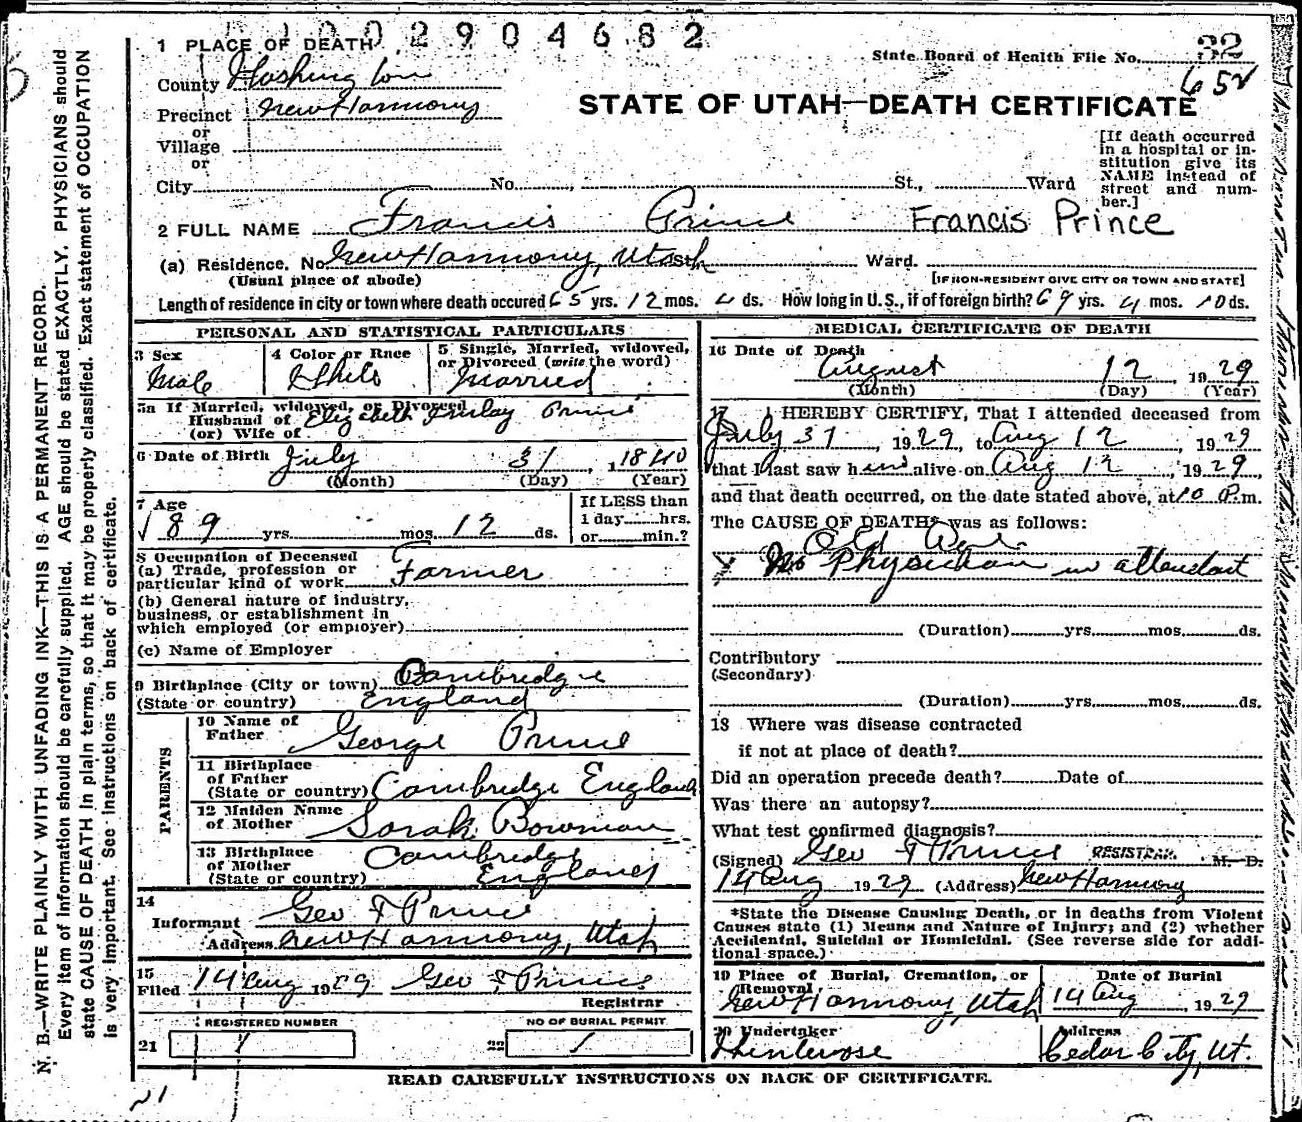 1002904682
1 PLACE OF DEATH
State Board of Health File No. 32
County Washington
652
Precinct New Harmony
STATE OF UTAH—DEATH CERTIFICATE
or
Village
or
City No. St., Ward
[If death occurred
in a hospital or in-
stitution give its
NAME instead of
street and num-
ber.]
2 FULL NAME Francis Prince Francis Prince
(a) Residence. No. New Harmony, Utah St. Ward.
(Usual place of abode) [IF NON-RESIDENT GIVE CITY OR TOWN AND STATE]
Length of residence in city or town where death occured 65 yrs. 12 mos. 4 ds. How long in U. S., if of foreign birth? 69 yrs. 4 mos. 10 ds.
PERSONAL AND STATISTICAL PARTICULARS
3 Sex
Male
4 Color or Race
White
5 Single, Married, widowed,
or Divorced (write the word)
Married
5a If Married, widowed, or Divorced
Husband of Elizabeth Prince
(or) Wife of
6 Date of Birth July 31, 1840
(Month) (Day) (Year)
7 Age
89 yrs. mos. 12 ds.
If LESS than
1 day hrs.
or min.?
8 Occupation of Deceased
(a) Trade, profession or
particular kind of work Farmer
(b) General nature of industry,
business, or establishment in
which employed (or employer)
(c) Name of Employer
9 Birthplace (City or town) Cambridge
(State or country) England
PARENTS
10 Name of
Father George Prince
11 Birthplace
of Father
(State or country) Cambridge England
12 Maiden Name
of Mother Sarah Bowman
13 Birthplace
of Mother Cambridge
(State or country) England
14
Informant Geo F Prince
Address New Harmony, Utah
15
Filed 14 Aug 1929 Geo F Prince
Registrar
REGISTERED NUMBER
21
NO OF BURIAL PERMIT
22
MEDICAL CERTIFICATE OF DEATH
16 Date of Death
August 12, 1929
(Month) (Day) (Year)
17 I HEREBY CERTIFY, That I attended deceased from
July 31, 1929, to Aug 12, 1929
that I last saw him alive on Aug 12, 1929
and that death occurred, on the date stated above, at 10 P.m.
The CAUSE OF DEATH* was as follows:
Old Age
No Physician in attendant
(Duration) yrs. mos. ds.
Contributory
(Secondary)
(Duration) yrs. mos. ds.
18 Where was disease contracted
if not at place of death?
Did an operation precede death? Date of
Was there an autopsy?
What test confirmed diagnosis?
(Signed) Geo F Prince REGISTRAR M. D.
14 Aug 1929 (Address) New Harmony
*State the Disease Causing Death, or in deaths from Violent
Causes state (1) Means and Nature of Injury; and (2) whether
Accidental, Suicidal or Homicidal. (See reverse side for addi-
tional space.)
19 Place of Burial, Cremation, or
Removal
New Harmony, Utah
Date of Burial
14 Aug, 1929
20 Undertaker
Address
Cedar City, Ut.
READ CAREFULLY INSTRUCTIONS ON BACK OF CERTIFICATE.
N. B.—WRITE PLAINLY WITH UNFADING INK—THIS IS A PERMANENT RECORD.
Every item of information should be carefully supplied. AGE should be stated EXACTLY. PHYSICIANS should
state CAUSE OF DEATH in plain terms, so that it may be properly classified. Exact statement of OCCUPATION
is very important. See instructions on back of certificate.